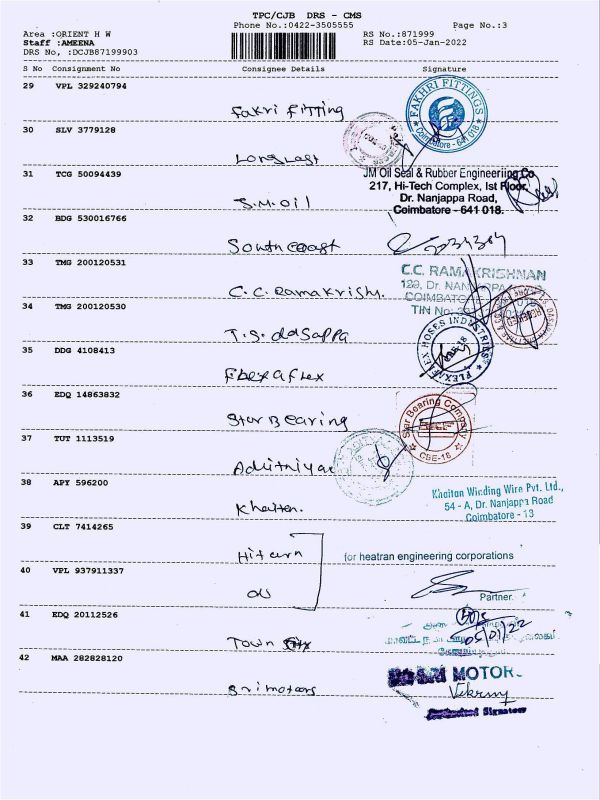 TPC/CJB DRS - CMS
Phone No.:0422-3505555 Page No.:3
Area :ORIENT H W RS No.:871999
Staff :AMEENA RS Date:05-Jan-2022
DRS No, :DCJB87199903
S No Consignment No Consignee Details Signature
29 VPL 329240794
Fakri Fitting
FAKHRI FITTINGS
Coimbatore - 641 018
30 SLV 3779128
Longlast
31 TCG 50094439
J.M.Oil
JM Oil Seal & Rubber Engineeriing Co
217, Hi-Tech Complex, Ist Floor,
Dr. Nanjappa Road,
Coimbatore - 641 018.
32 BDG 530016766
South Coast
33 TMG 200120531
C.C. Ramakrish.
C.C. RAMAKRISHNAN
129, Dr. NANJAPPA
COIMBATO
TIN No:
34 TMG 200120530
T.S. dasappa
35 DDG 4108413
Flexaflex
FLEXAFLEX HOSES INDUSTRIES
36 EDQ 14863832
Star Bearing
Star Bearing Company
CBE-18
37 TUT 1113519
38 APY 596200
Khaiten.
Khaitan Winding Wire Pvt. Ltd.,
54 - A, Dr. Nanjappa Road
Coimbatore - 13
39 CLT 7414265
for heatran engineering corporations
40 VPL 937911337
Partner.
41 EDQ 20112526
Town
05/01/22
42 MAA 282828120
Sri motors
SRI MOTOR
Authorised Signatory